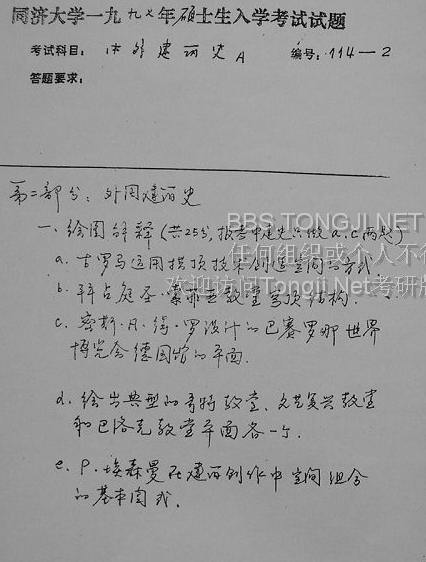 同济大学一九九七年硕士生入学考试试题
考试科目： 中外建筑史A 编号：114—2
答题要求：
第二部分：外国建筑史
BBS.TONGJI.NET
一、绘图解释（共25分，报考中建史只做a.c两题）
任何组织或个人不得
a. 古罗马运用拱顶技术创造空间的方式.
欢迎访问Tongji.Net考研版
b. 拜占庭圣·索菲亚教堂穹顶结构
c. 密斯·凡·得·罗设计的巴塞罗那世界
博览会德国馆的平面.
d. 绘出典型的哥特教堂、文艺复兴教堂
和巴洛克教堂平面各一个.
e. P.埃森曼在建筑创作中空间组合
的基本图式.